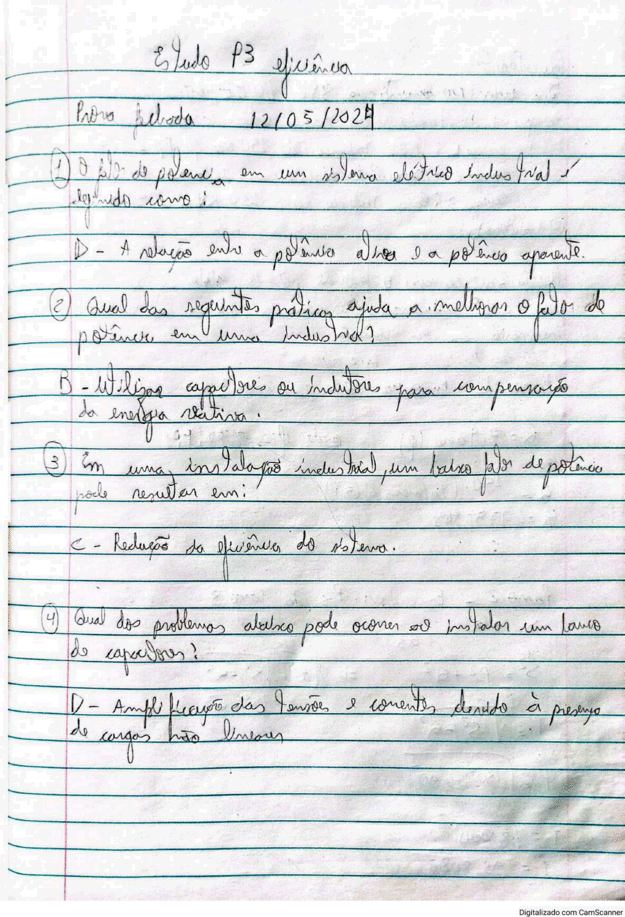 Estudo P3 eficiência
Prova fechada 12/05/2024
1 O fator de potência em um sistema elétrico industrial é
definido como:
D - A relação entre a potência ativa e a potência aparente.
2 Qual das seguintes práticas ajuda a melhorar o fator de
potência em uma indústria?
B - Utilizar capacitores ou indutores para compensação
da energia reativa.
3 Em uma instalação industrial, um baixo fator de potência
pode resultar em:
C - Redução da eficiência do sistema.
4 Qual dos problemas abaixo pode ocorrer ao instalar um banco
de capacitores?
D - Amplificação das tensões e correntes devido à presença
de cargas não lineares
Digitalizado com CamScanner